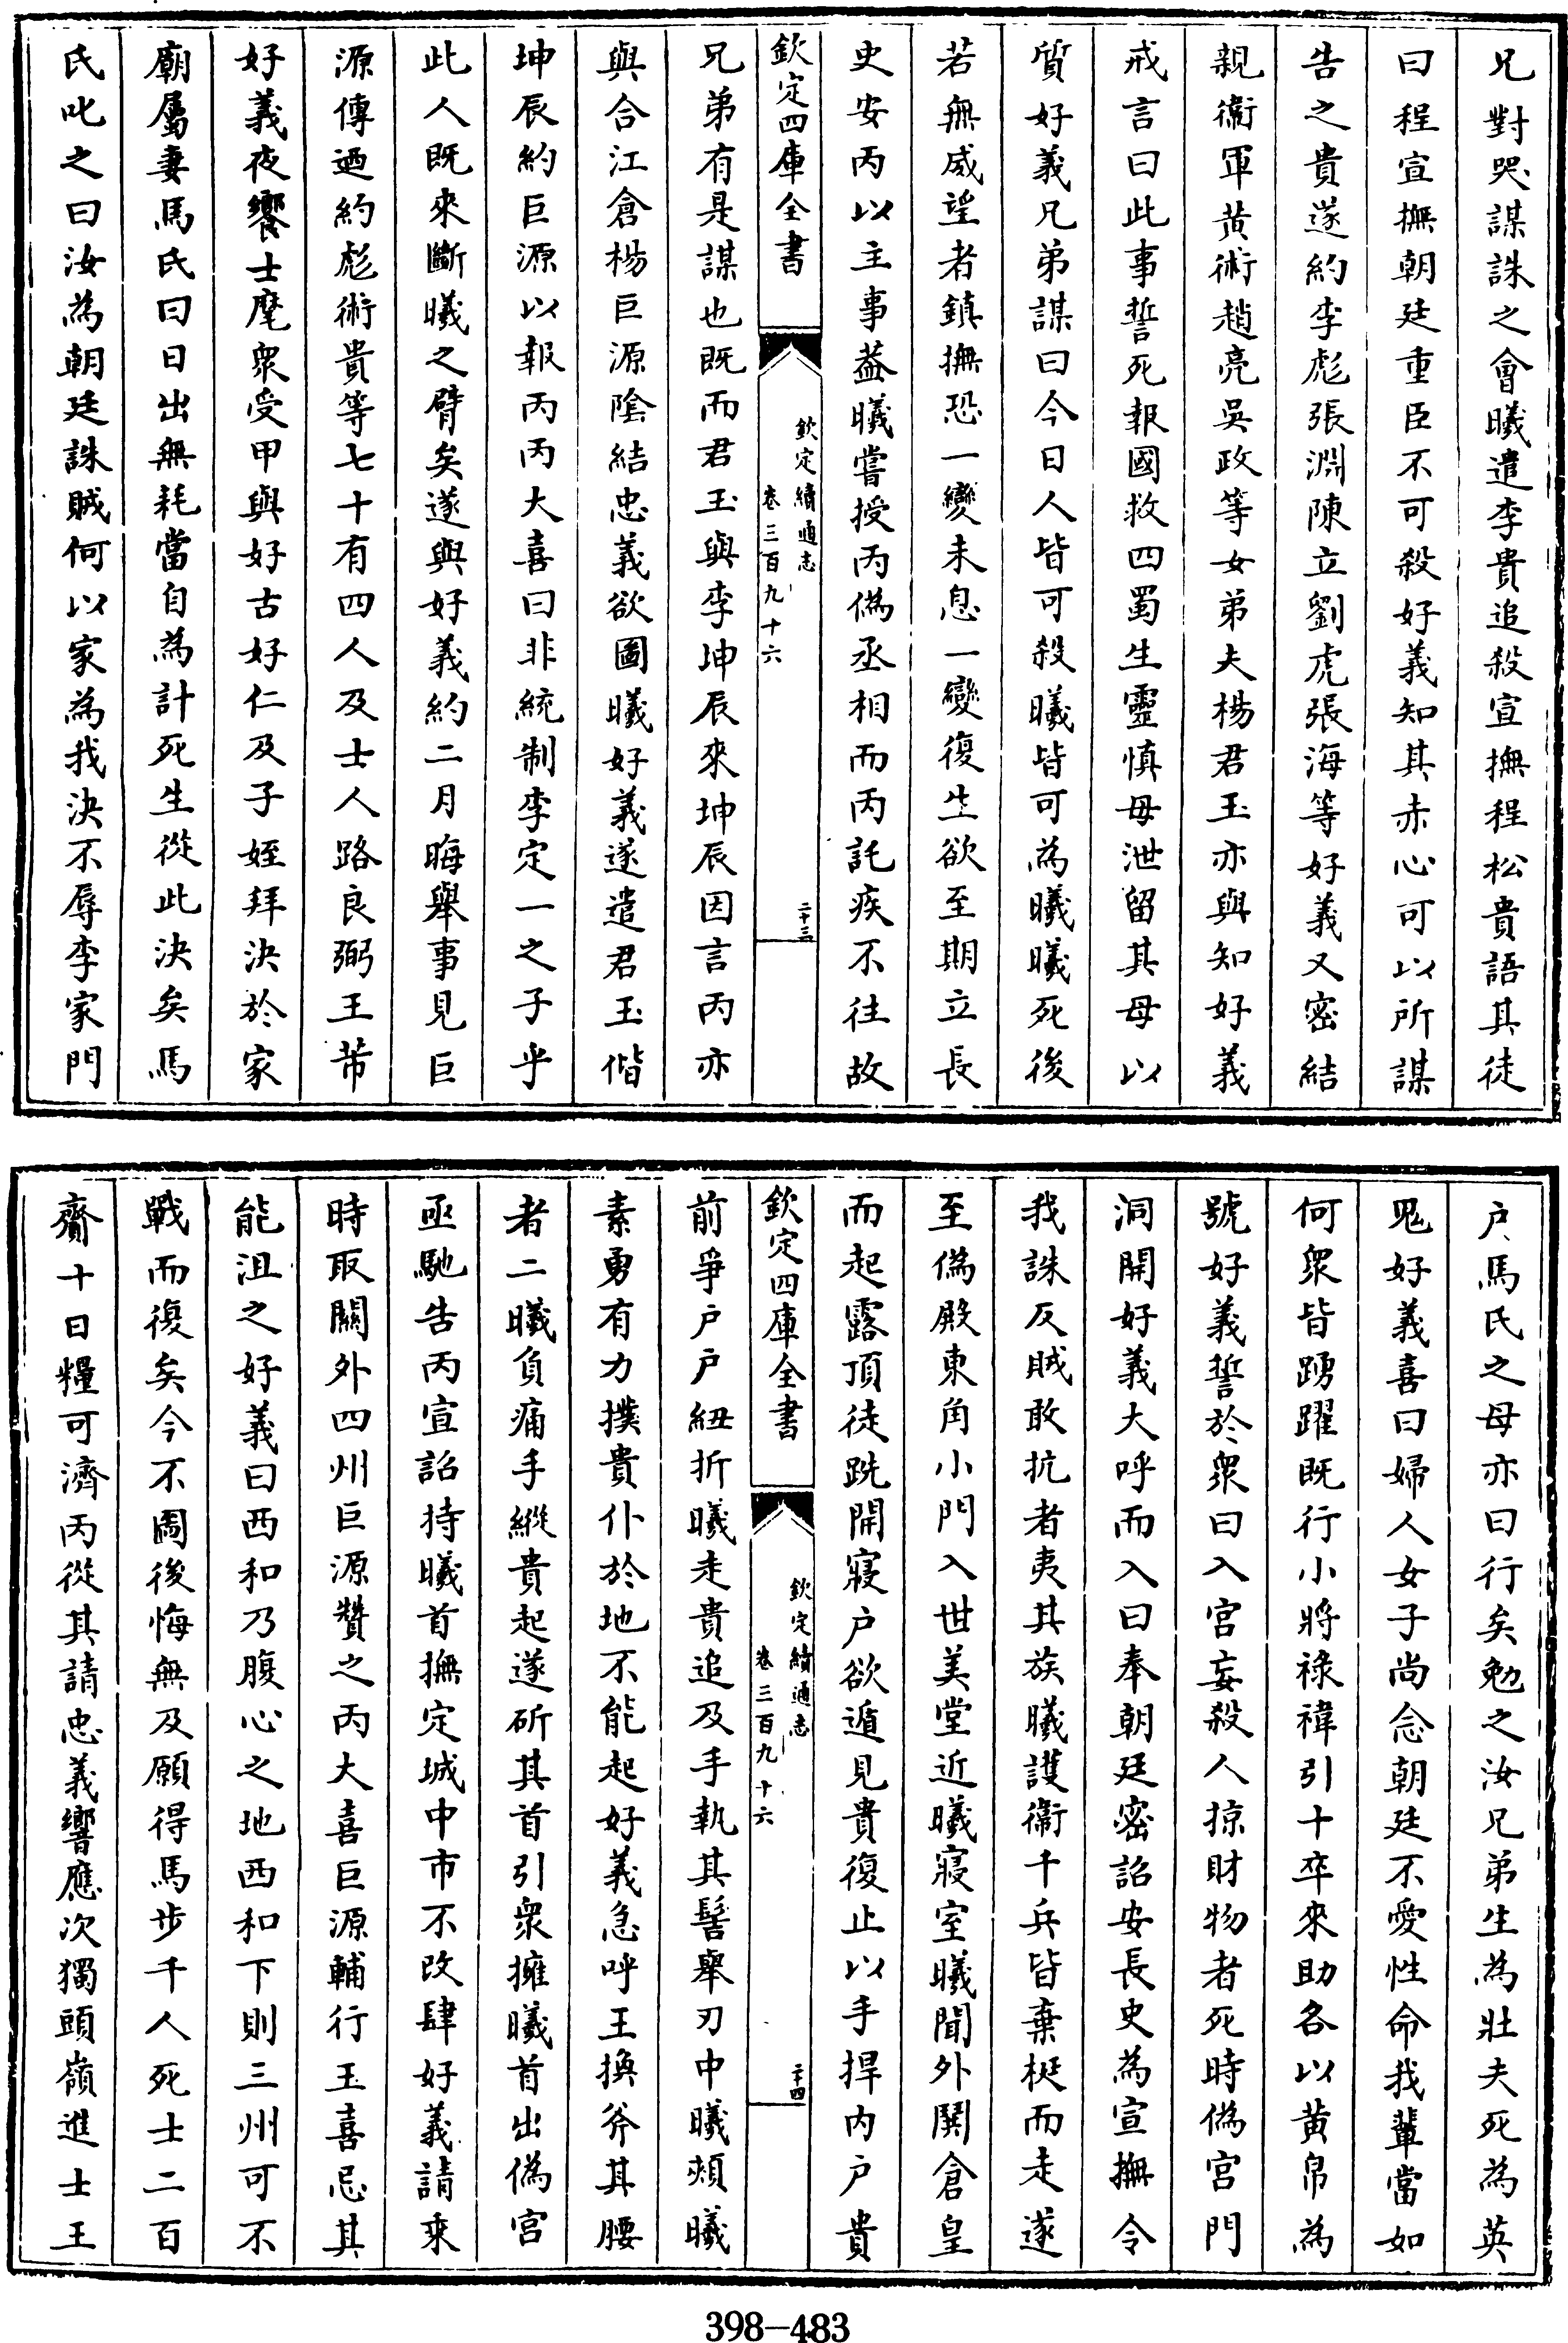 兄對哭謀誅之會曦遣李貴追殺宣撫程松貴語其徒
曰程宣撫朝廷重臣不可殺好義知其赤心可以所謀
告之貴遂約李彪張淵陳立劉虎張海等好義又密結
親衞軍黄術趙亮吳政等女弟夫楊君玉亦與知好義
戒言曰此事誓死報國救四蜀生靈慎毋泄留其母以
質好義兄弟謀曰今日人皆可殺曦皆可為曦曦死後
若無威望者鎮撫恐一變未息一變復生欲至期立長
史安丙以主事葢曦嘗授丙偽丞相而丙託疾不往故
欽定四庫全書
欽定續通志
卷三百九十六
二十三
兄弟有是謀也既而君玉與李坤辰來坤辰因言丙亦
與合江倉楊巨源陰結忠義欲圖曦好義遂遣君玉偕
坤辰約巨源以報丙丙大喜曰非統制李定一之子乎
此人既來斷曦之臂矣遂與好義約二月晦舉事見巨
源傳廼約彪術貴等七十有四人及士人路良弼王芾
好義夜饗士麾衆受甲與好古好仁及子姪拜決於家
廟屬妻馬氏曰日出無耗當自為計死生從此決矣馬
氏叱之曰汝為朝廷誅賊何以家為我決不辱李家門
户馬氏之母亦曰行矣勉之汝兄弟生為壯夫死為英
鬼好義喜曰婦人女子尚念朝廷不愛性命我輩當如
何衆皆踴躍既行小將禄禕引十卒來助各以黄帛為
號好義誓於衆曰入宫妄殺人掠財物者死時偽宫門
洞開好義大呼而入曰奉朝廷密詔安長史為宣撫令
我誅反賊敢抗者夷其族曦護衞千兵皆棄梃而走遂
至偽殿東角小門入世美堂近曦寢室曦聞外鬨倉皇
而起露頂徒跣開寢户欲遁見貴復止以手捍内户貴
欽定四庫全書
欽定續通志
卷三百九十六
二十四
前爭户户紐折曦走貴追及手執其髻舉刃中曦頰曦
素勇有力撲貴仆於地不能起好義急呼王換斧其腰
者二曦負痛手縱貴起遂斫其首引衆擁曦首出偽宫
亟馳告丙宣詔持曦首撫定城中市不改肆好義請乘
時取關外四州巨源贊之丙大喜巨源輔行王喜忌其
能沮之好義曰西和乃腹心之地西和下則三州可不
戰而復矣今不圖後悔無及願得馬步千人死士二百
齎十日糧可濟丙從其請忠義響應次獨頭嶺進士王
398-483